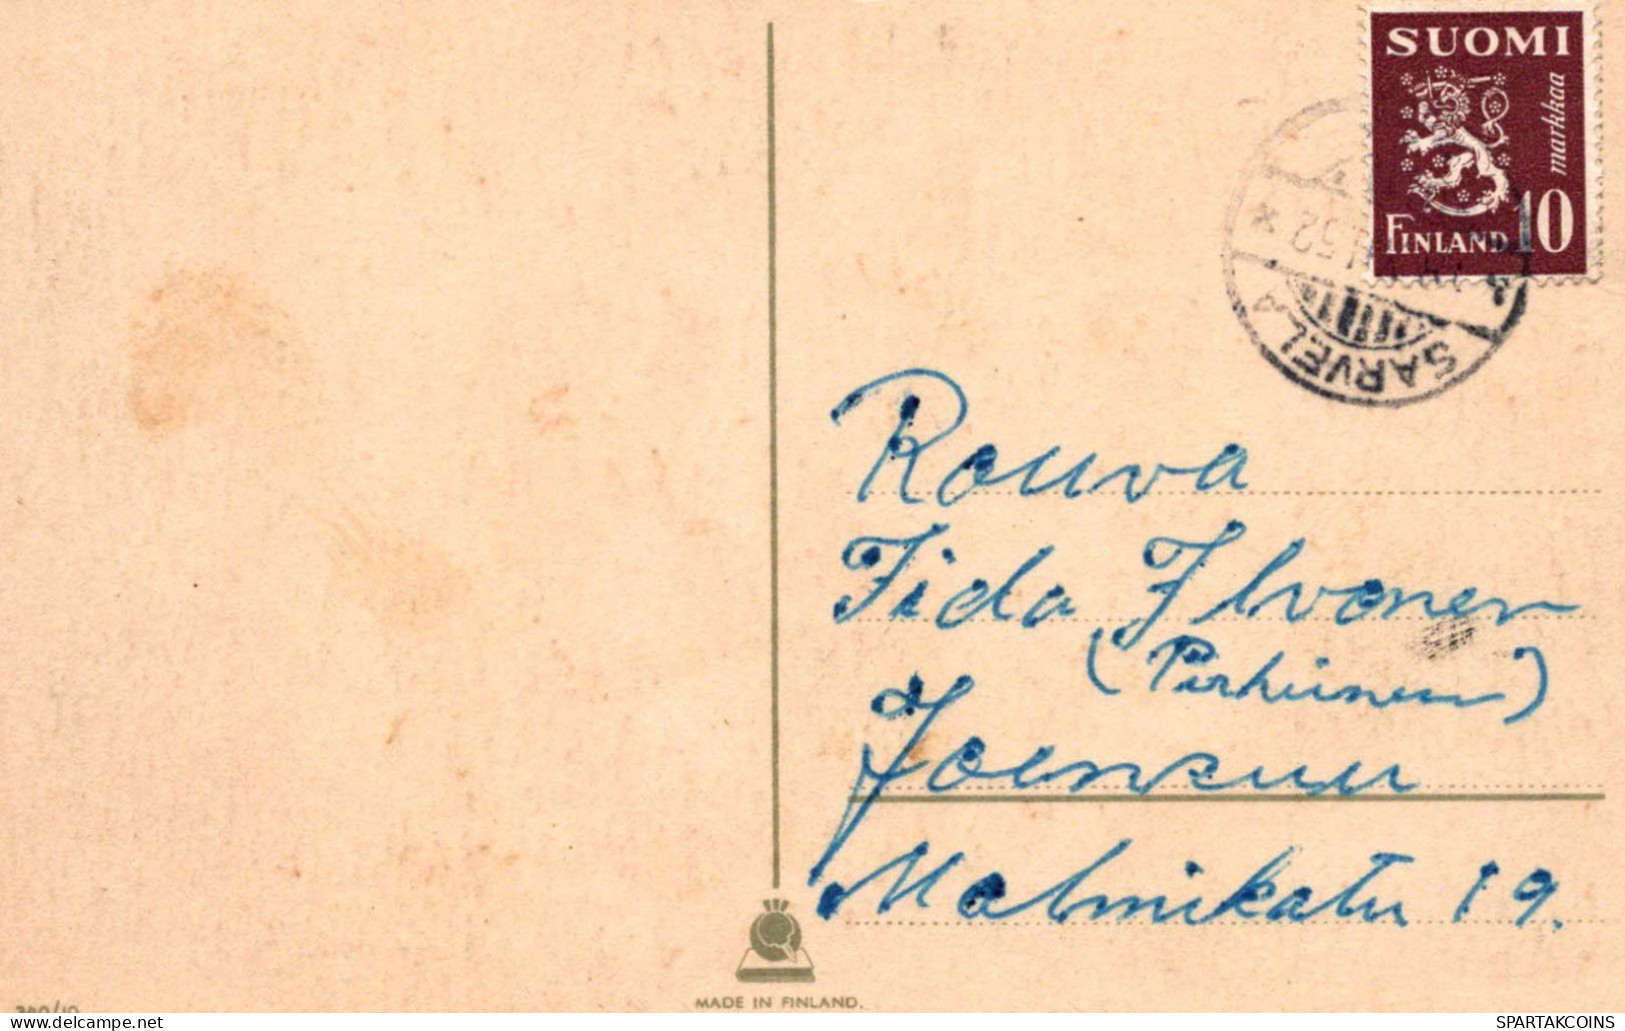 SUOMI
markkaa
FINLAND 10
SARVEL
52
Rouva
Iida Ilvonen
(Pirhinen)
Joensuu
Malmikatu 19.
MADE IN FINLAND.
SPARTAKCOINS